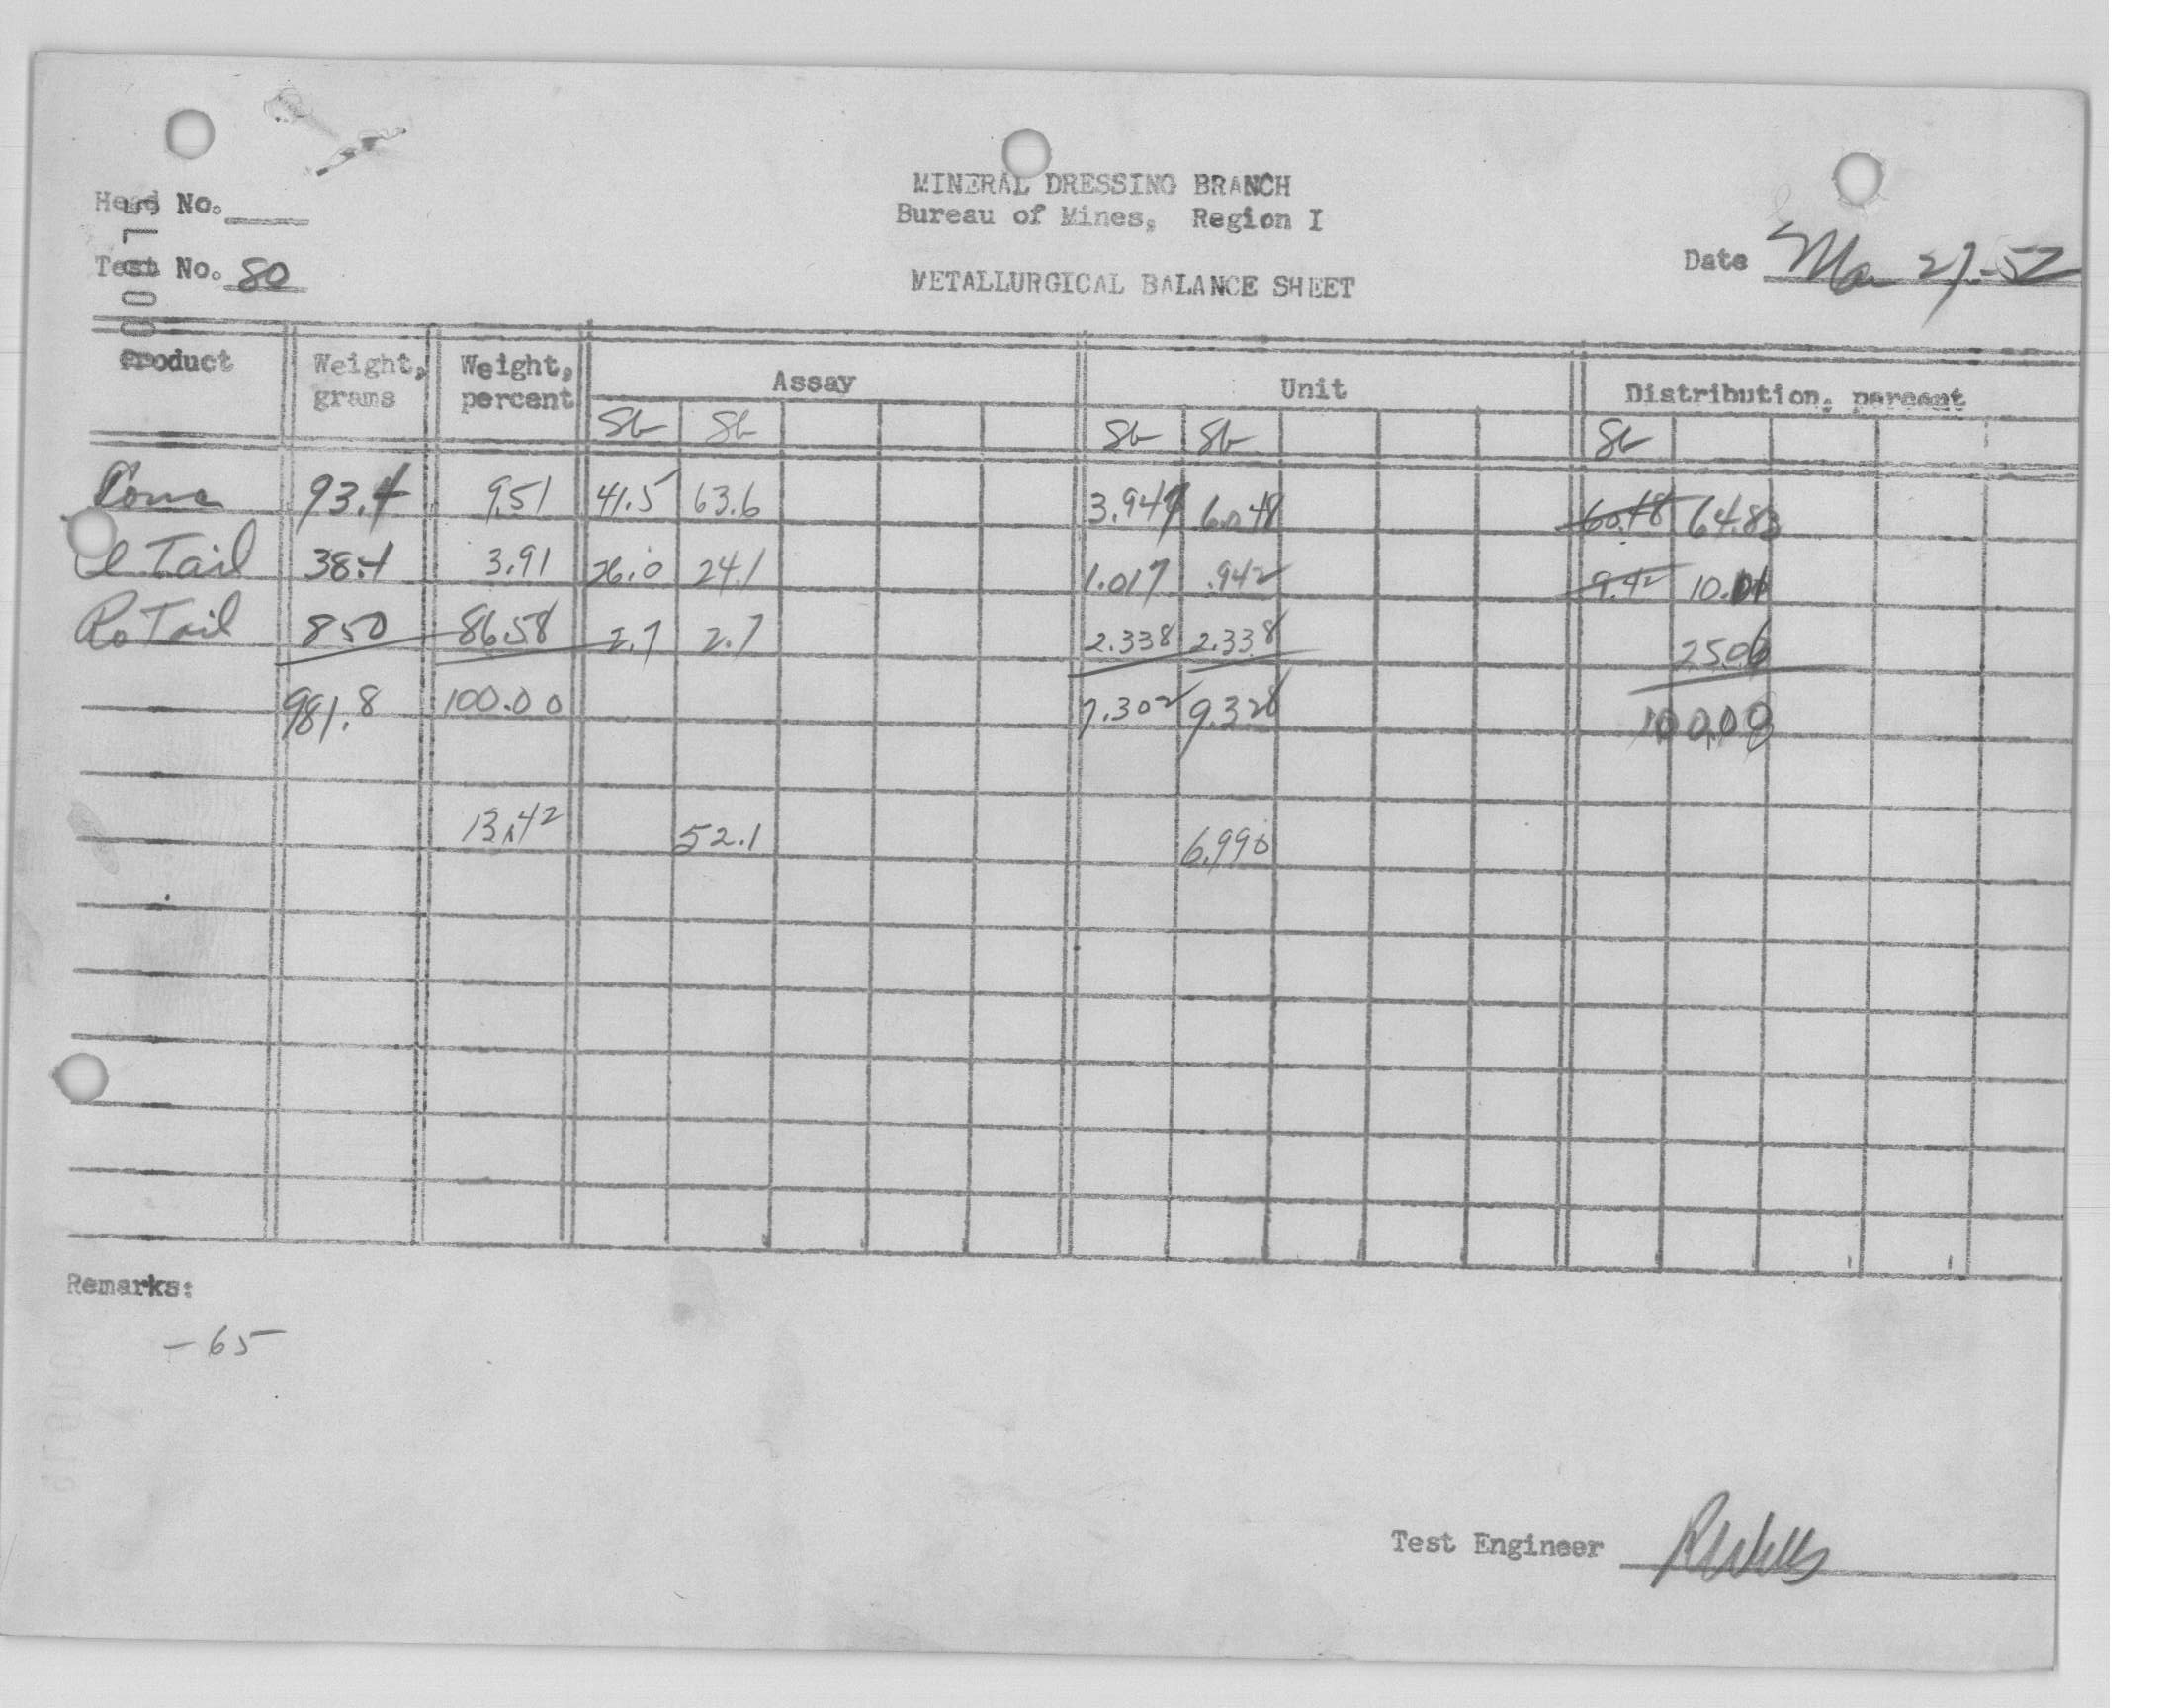 MINERAL DRESSING BRANCH
Head No.
Bureau of Mines, Region I
Test No. 80
Date Mar 27-52
METALLURGICAL BALANCE SHEET
00075
Product Weight, grams Weight, percent Assay Unit Distribution, percent
Sb Sb Sb Sb Sb
Conc 93.4 9.51 41.5 63.6 3.947 6.048 60.48 64.83
Cl Tail 38.4 3.91 26.0 24.1 1.017 .942 9.42 10.11
Ro Tail 850 86.58 2.7 2.7 2.338 2.338 25.06
981.8 100.00 7.302 9.328 100.00
13.42 52.1 6.990
Remarks:
-65
Test Engineer